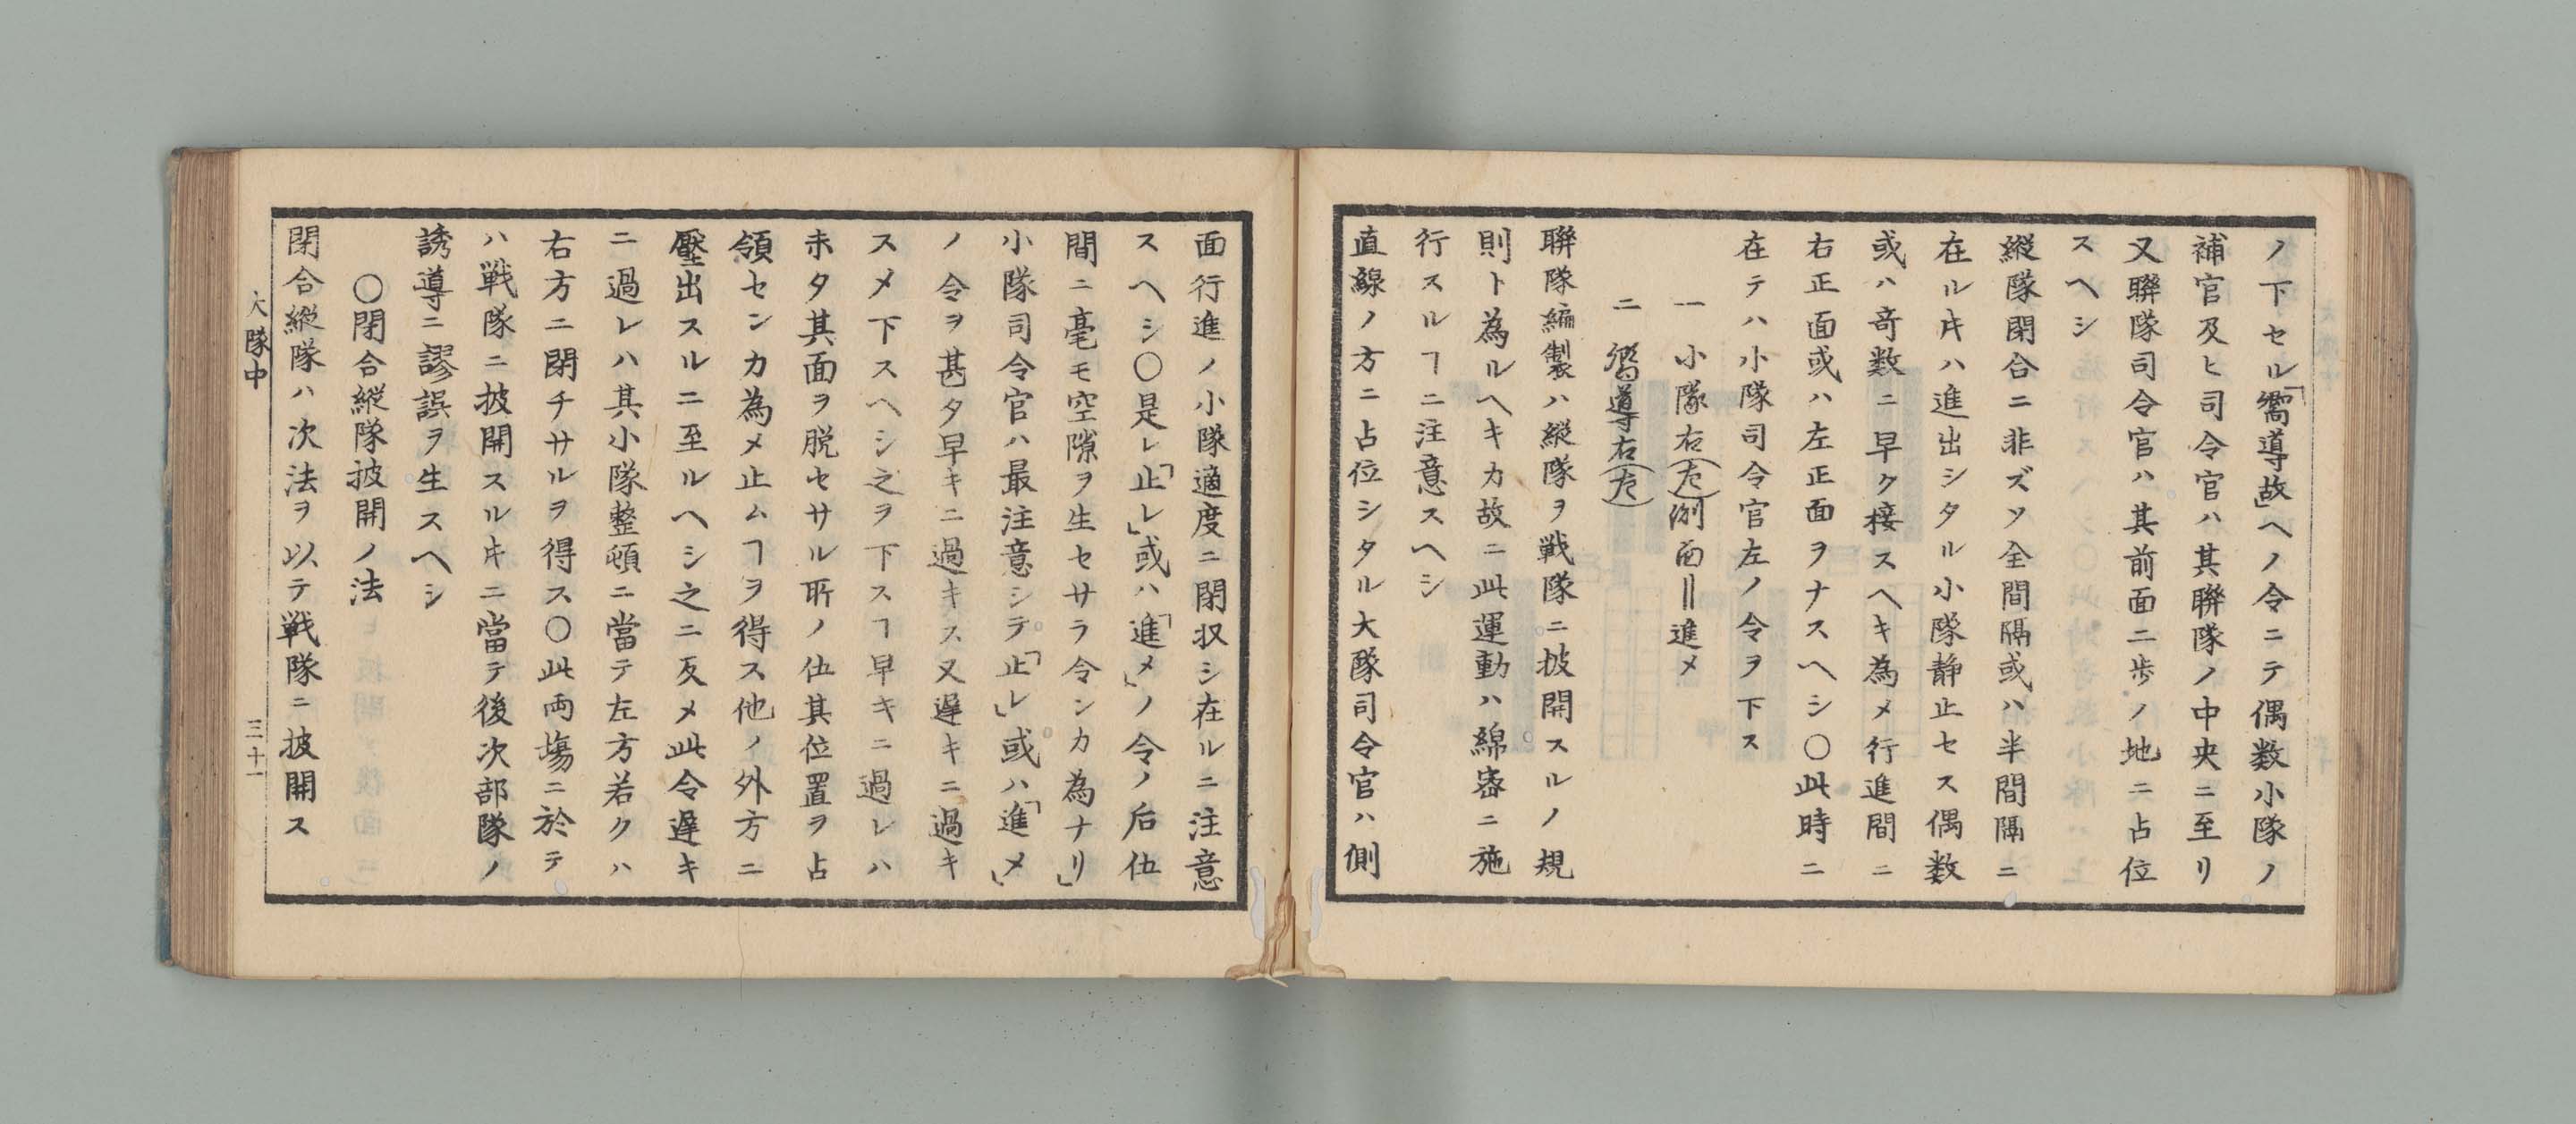 ノ下セル「嚮導故」ヘノ令ニテ偶数小隊ノ
補官及ヒ司令官ハ其聯隊ノ中央ニ至リ
又聯隊司令官ハ其前面二歩ノ地ニ占位
スヘシ
縦隊閉合ニ非ズソ全間隔或ハ半間隔ニ
在ルキハ進出シタル小隊静止セス偶数
或ハ奇数ニ早ク接スヘキ為メ行進間ニ
右正面或ハ左正面ヲナスヘシ〇此時ニ
在テハ小隊司令官左ノ令ヲ下ス
一 小隊右(左)側面‖進メ
二 嚮導右(左)
聯隊編製ハ縦隊ヲ戦隊ニ披開スルノ規
則ト為ルヘキカ故ニ此運動ハ綿密ニ施
行スルヿニ注意スヘシ
直線ノ方ニ占位シタル大隊司令官ハ側
面行進ノ小隊適度ニ閉収シ在ルニ注意
スヘシ〇是レ「止レ」或ハ「進メ」ノ令ノ后伍
間ニ毫モ空隙ヲ生セサラ令ンカ為ナリ」
小隊司令官ハ最注意シテ「止レ」或ハ「進メ」
ノ令ヲ甚タ早キニ過キス又遅キニ過キ
スメ下スヘシ之ヲ下スヿ早キニ過レハ
未タ其面ヲ脱セサル所ノ伍其位置ヲ占
領センカ為メ止ムヿヲ得ス他ノ外方ニ
壓出スルニ至ルヘシ之ニ反メ此令遅キ
ニ過レハ其小隊整頓ニ當テ左方若クハ
右方ニ閉チサルヲ得ス〇此両塲ニ於テ
ハ戦隊ニ披開スルキニ當テ後次部隊ノ
誘導ニ謬誤ヲ生スヘシ
〇閉合縦隊披開ノ法
閉合縦隊ハ次法ヲ以テ戦隊ニ披開ス
大隊中 三十一